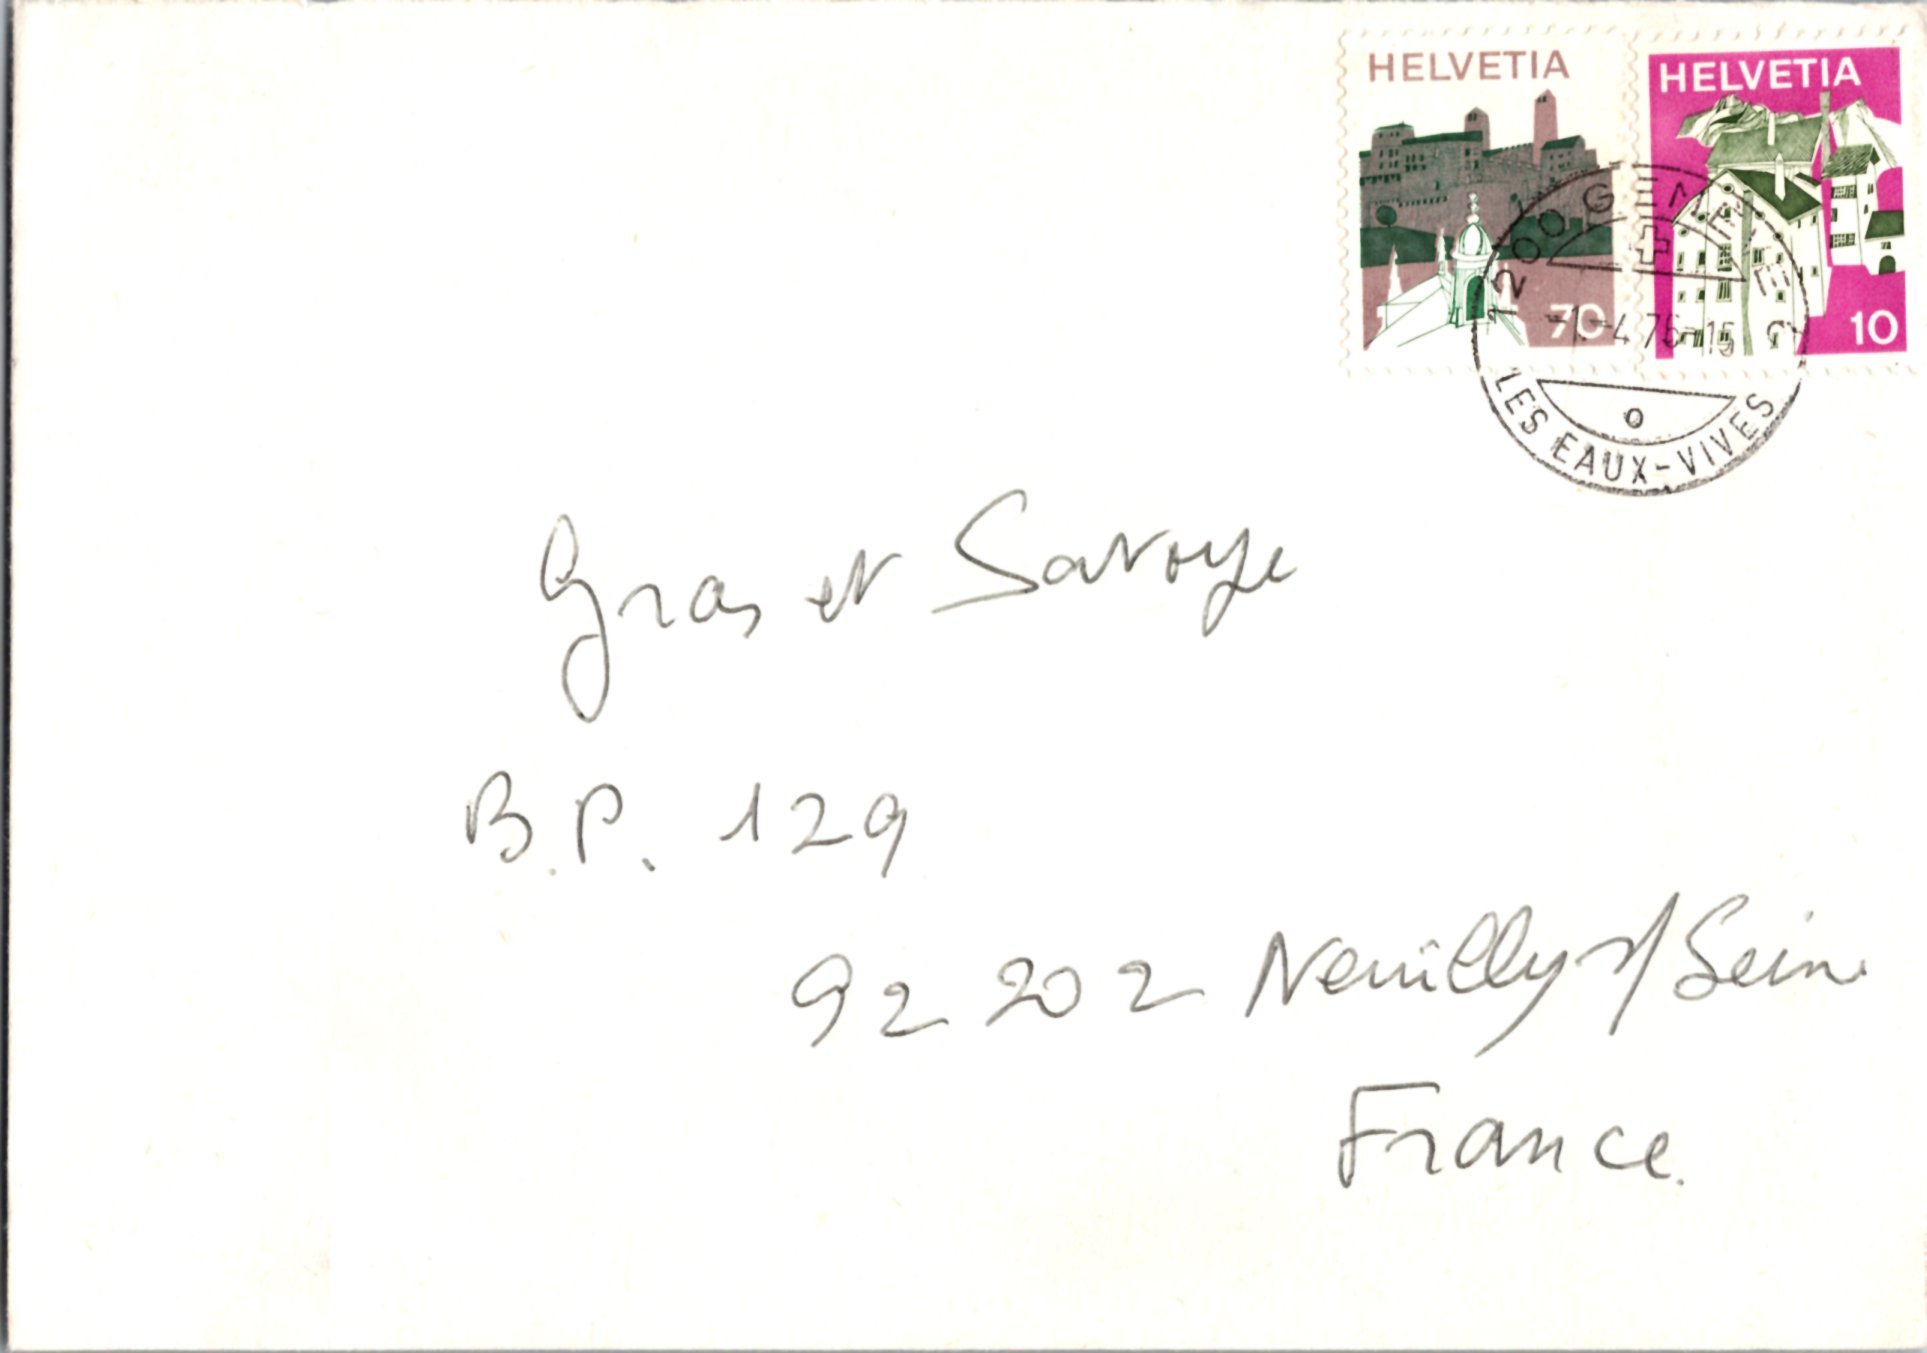 HELVETIA
70
HELVETIA
10
1200 GENEVE
-1.-4.76-15
LES EAUX-VIVES
Gras et Savoye
B.P. 129
92 202 Neuilly s/ Seine
France.